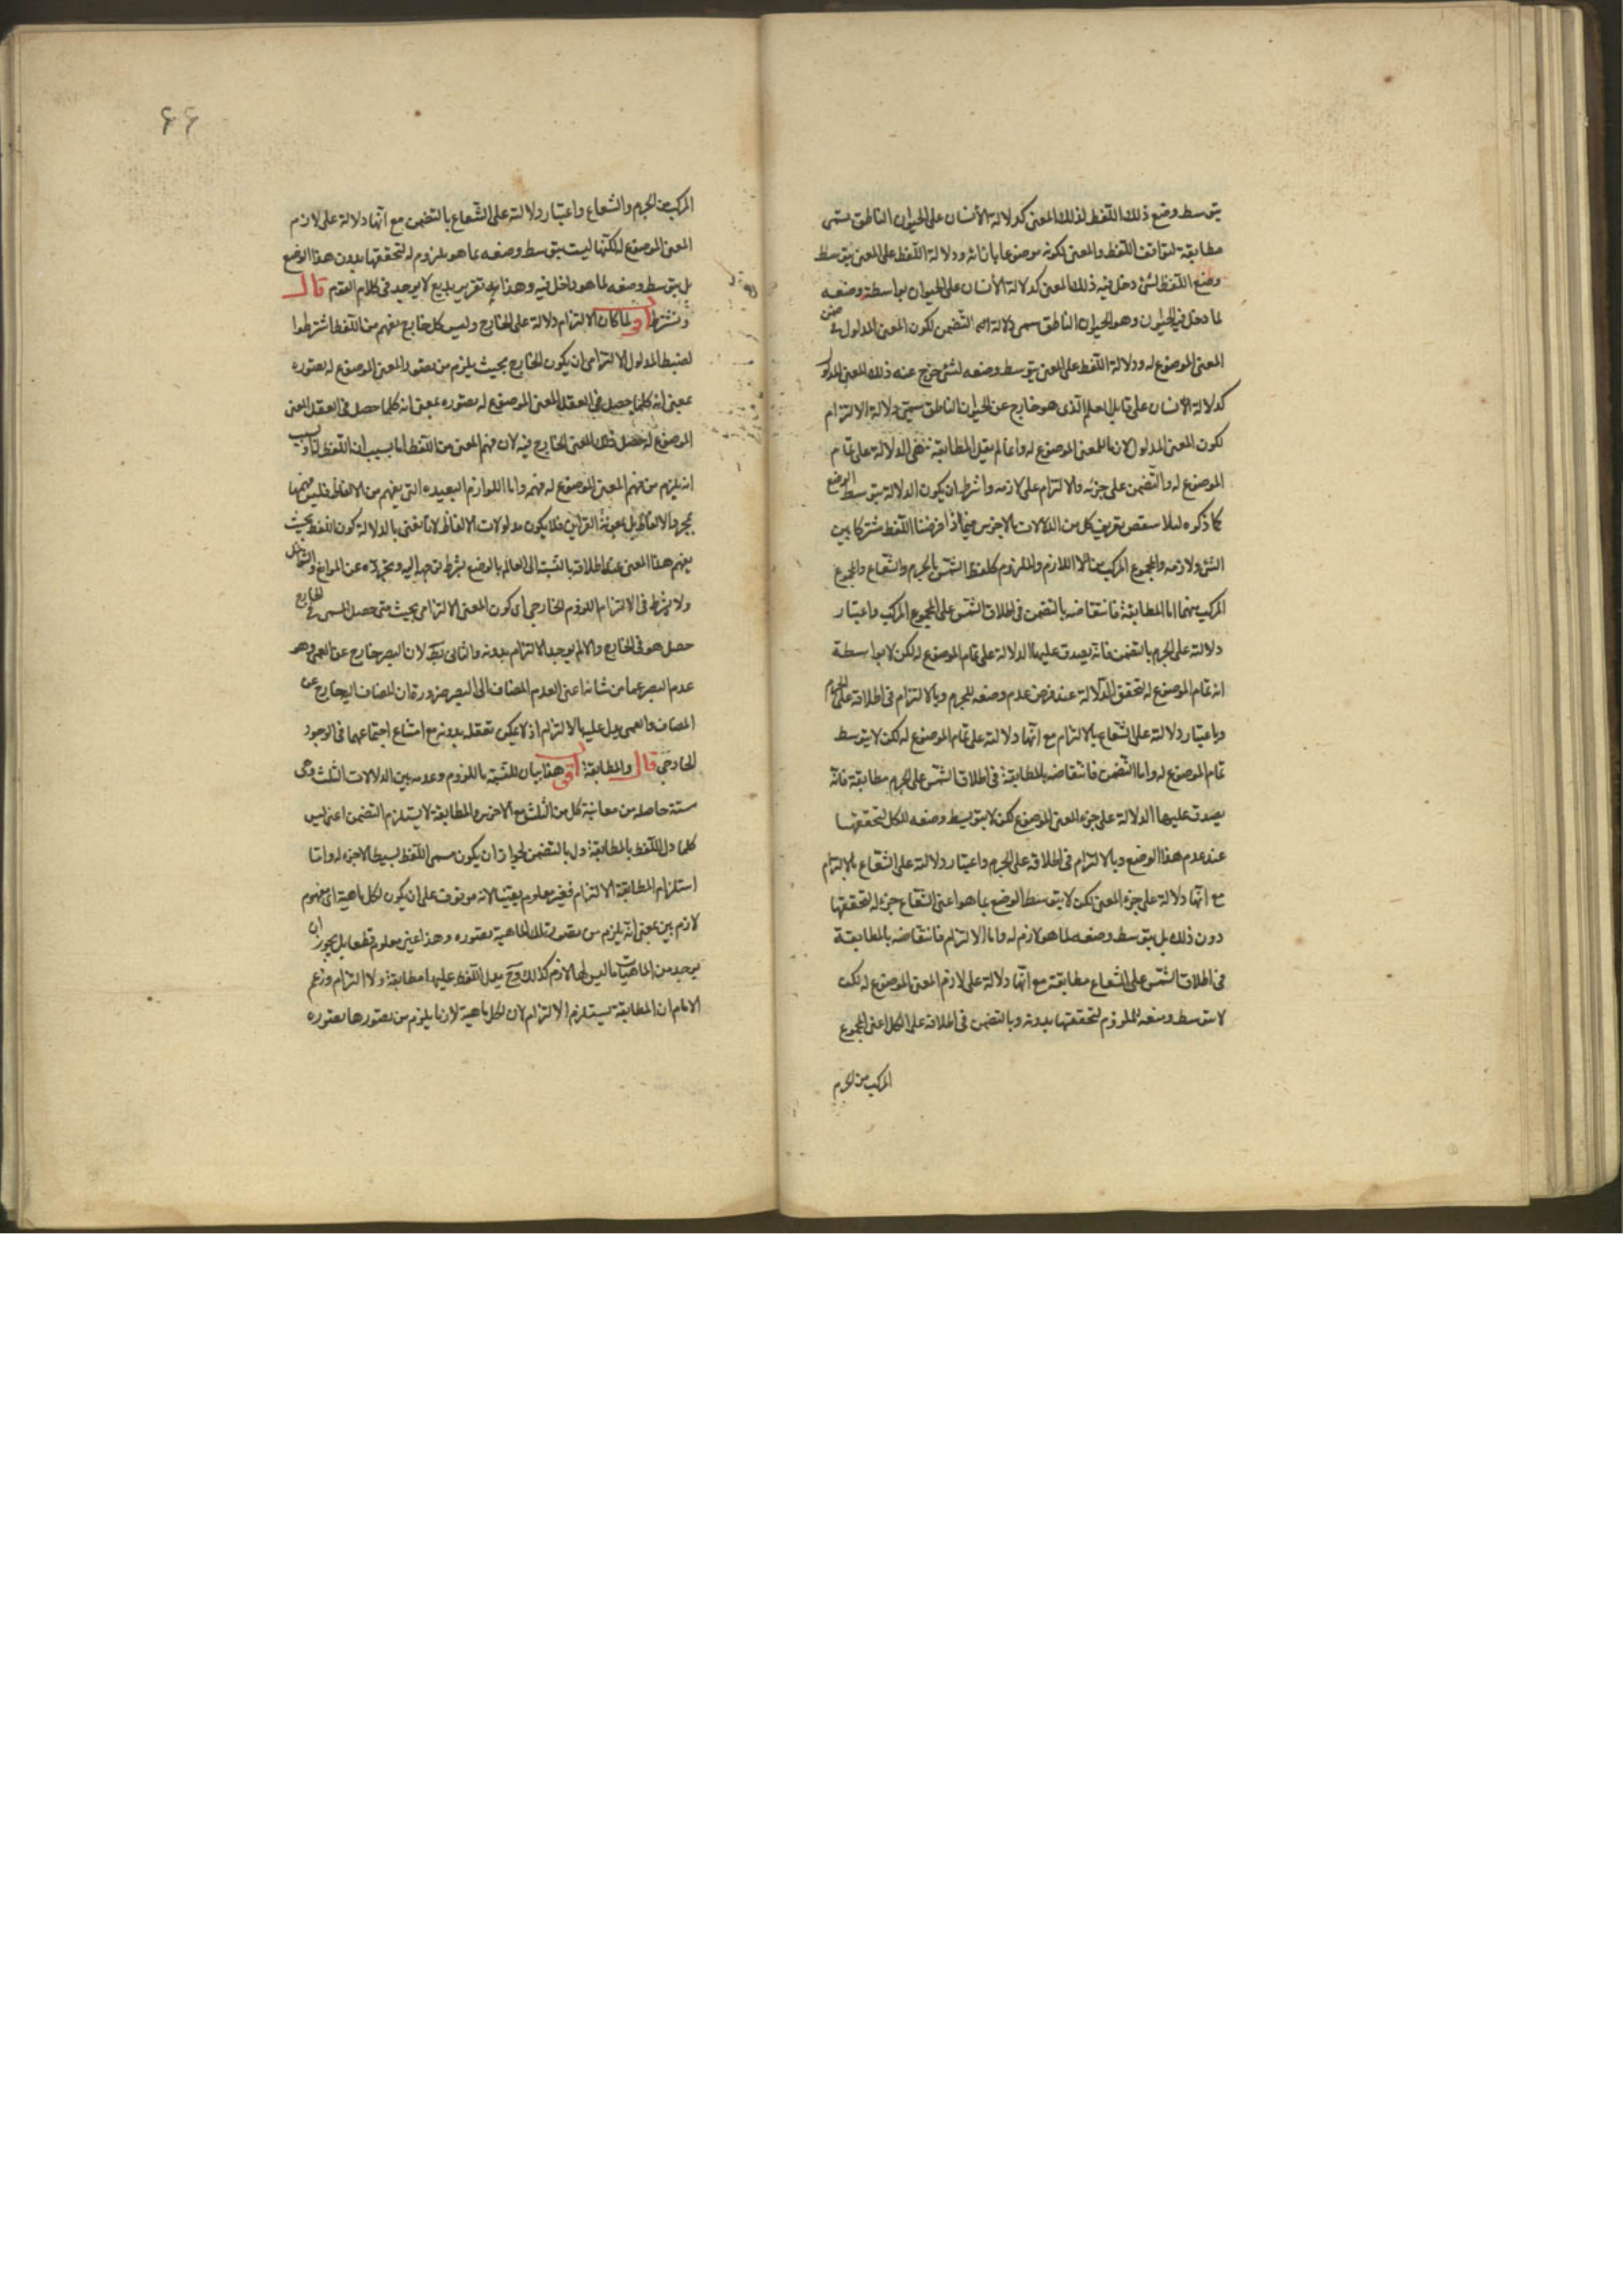 يتوسط وضع ذلك اللفظ لذلك المعنى كدلالة الأنسان على الحيوان الناطق يسمى
مطابقة لتوافق اللفظ والمعنى لكونه موضوعا بازائه ودلالة اللفظ على المعنى يتوسط
وضع اللفظ لشئ دخل فيه ذلك المعنى كدلالة الأنسان على الحيوان بواسطة وضعه
لما دخل فيه الحيوان وهو الحيوان الناطق يسمى دلالة التضمن لكون المعنى المدلول في ضمن
المعنى الموضوع له ودلالة اللفظ على المعنى يتوسط وضعه لشئ خرج عنه ذلك المعنى المدلول
كدلالة الأنسان على قابل العلم الذى هو خارج عن الحيوان الناطق يسمى دلالة الالتزام
لكون المعنى المدلول لازما للمعنى الموضوع له وانما لم يقل المطابقة هى الدلالة على تمام
الموضوع له والتضمن على جزئه والالتزام على لازمه واشرط ان يكون الدلالة يتوسط الوضع
كما ذكره لئلا ينتقض تعريف كل من الدلالات بالاخرين فيما اذا فرضنا اللفظ مشتركا بين
الشئ ولازمه والمجموع المركب من اللازم والملزوم كلفظ الشمس بالجرم والشعاع والمجموع
المركب منهما اما المطابقة فانتقاضه بالتضمن فى اطلاق الشمس على المجموع المركب واعتبار
دلالته على الجرم بالتضمن فانه يصدق عليها الدلالة على تمام الموضوع له لكن لا بواسطة
انه تمام الموضوع له لتحقق الدلالة عند فرض عدم وضعه للجرم وبالالتزام فى اطلاقه على الجرم
وباعتبار دلالته على الشعاع بالالتزام مع انها دلالته على تمام الموضوع له لكن لا يتوسط
تمام الموضوع له واما التضمن فانتقاضه بالمطابقة فى اطلاق الشمس على الجرم مطابقة فانه
يصدق عليها الدلالة على جزء المعنى الموضوع لكن لا يتوسط وضعه للكل لتحققها
عند عدم هذا الوضع وبالالتزام فى اطلاقه على الجرم واعتبار دلالته على الشعاع بالالتزام
مع انها دلالة على جزء المعنى لكن لا يتوسط الوضع بما هو اعنى الشعاع جزء له لتحققها
دون ذلك بل يتوسط وضعه لما هو لازم له واما الالتزام فانتقاضه بالمطابقة
فى اطلاق الشمس على الشعاع مطابقة مع انها دلالة على لازم المعنى الموضوع له لكن
لا يتوسط وضعه للملزوم لتحققها بدونه وبالتضمن فى اطلاقه على الكل اعنى المجموع
المركب من الجرم
٤٤
المركب من الجرم والشعاع واعتبار دلالته على الشعاع بالتضمن مع انها دلالة على لازم
المعنى الموضوع له لكنها ليست يتوسط وضعه بما هو ملزوم له لتحققها بدون هذا الوضع
بل يتوسط وضعه لما هو داخل فيه وهذا تقرير بديع لا يوجد فى كلام القوم قال
ويشترط اقول لما كان الالتزام دلالة على الخارج وليس كل خارج يفهم من اللفظ اشترطوا
لضبط المدلول الالتزامى ان يكون الخارج بحيث يلزم من تصور المعنى الموضوع له تصوره
بمعنى انه كلما حصل فى العقل المعنى الموضوع له تصوره بمعنى انه كلما حصل فى العقل المعنى
الموضوع له حصل ذلك المعنى الخارج فيه لان فهم المعنى من اللفظ اما بسبب ان اللفظ له او بسبب
انه يلزم من فهم المعنى الموضوع له فهمه واما اللوازم البعيده التى يفهم من الالفاظ فليس فهمها
بمجرد الالفاظ بل بمعونة القراين فلا يكون مدلولات الالفاظ لانا نعنى بالدلالة كون اللفظ بحيث
يفهم هذا المعنى عند اطلاقه بالنسبة الى العالم بالوضع بشرط توجهه اليه وتجرده عن الموانع والشواغل
ولا يشترط فى الالتزام اللزوم الخارجى اى كون المعنى الالتزامى بحيث متى حصل المسمى فى الخارج
حصل هو فى الخارج والا لم يوجد الالتزام بدونه والتالى بط لان البصر خارج عن العمى وهو
عدم البصر عما من شانه اعنى العدم المضاف الى البصر ضرورة ان المضاف اليه خارج عن
المضاف والعمى يدل عليه بالالتزام اذ لا يمكن تعقله بدونه مع امتناع اجتماعهما فى الوجود
الخارجى قال والمطابقة اقول هذا بيان للنسبة باللزوم وعدمه بين الدلالات الثلث وهى
ستة حاصله من مقايسة كل من الثلث مع الاخرين والمطابقة لا يستلزم التضمن اعنى ليس
كلما دل اللفظ بالمطابقة دل بالتضمن لجواز ان يكون مسمى اللفظ بسيطا لا جزء له واما
استلزام المطابقة الالتزام فغير معلوم يقينا لانه موقوف على ان يكون لكل ماهية اى مفهوم
لازم بين بمعنى انه يلزم من تصور تلك الماهية تصوره وهذا غير معلوم قطعا بل يجوز ان
يوجد من الماهيات ما ليس لها لازم كذلك وح يدل اللفظ عليها مطابقة ولا التزام وزعم
الامام ان المطابقة يستلزم الالتزام لان لكل ماهية لازما يلزم من تصورها تصوره